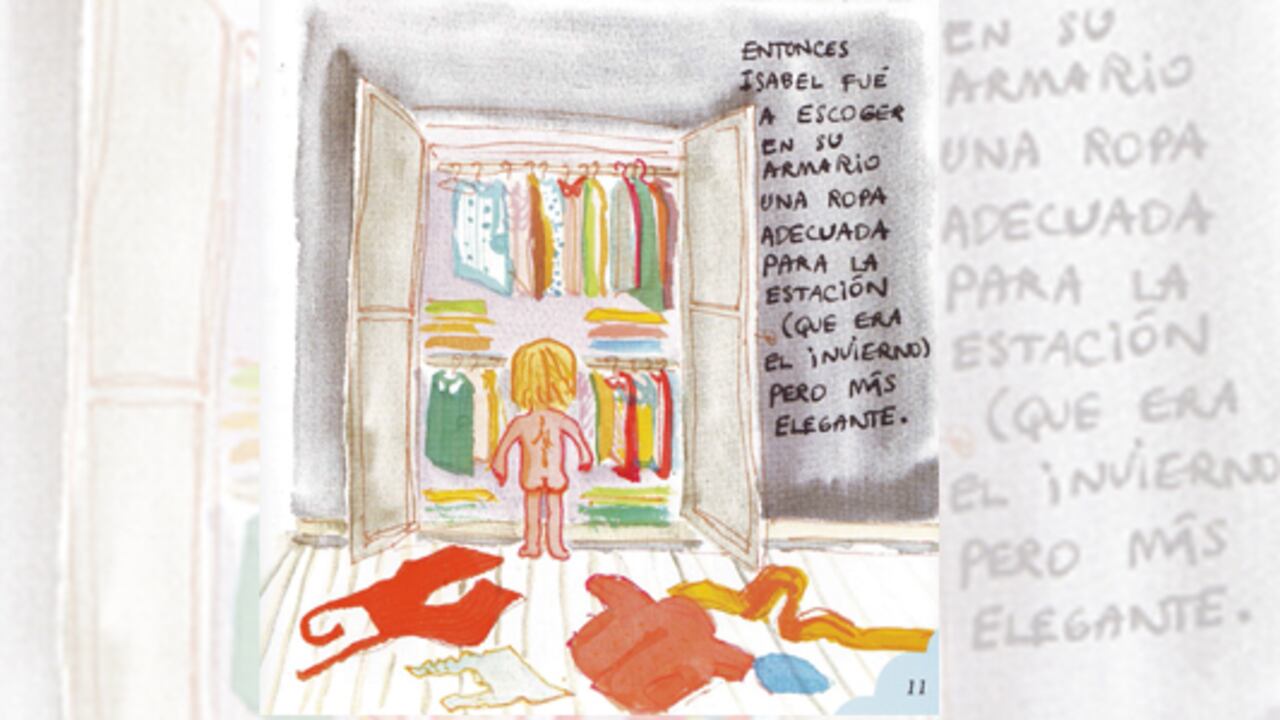 ENTONCES
ISABEL FUÉ
A ESCOGER
EN SU
ARMARIO
UNA ROPA
ADECUADA
PARA LA
ESTACIÓN
(QUE ERA
EL INVIERNO)
PERO MÁS
ELEGANTE.
11
EN SU
ARMARIO
UNA ROPA
ADECUADA
PARA LA
ESTACIÓN
(QUE ERA
EL INVIERNO
PERO MÁS
ELEGANTE.